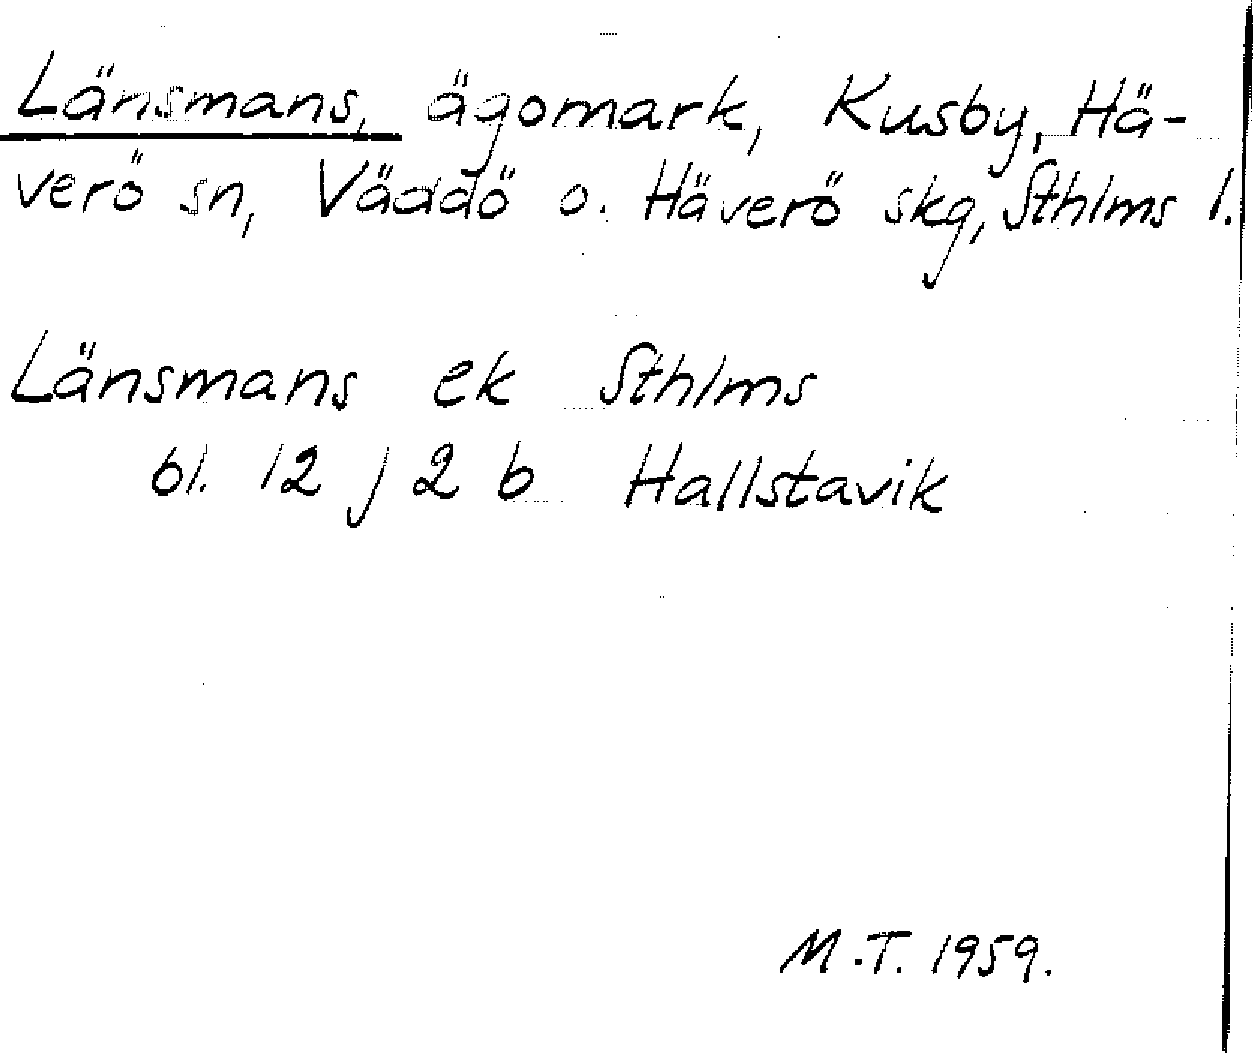 Länsmans, ägomark, Kusby, Hä-
verö sn, Väddö o. Häverö skg, Sthlms l.
Länsmans ek Sthlms
bl. 12 j 2 b Hallstavik
M.T. 1959.